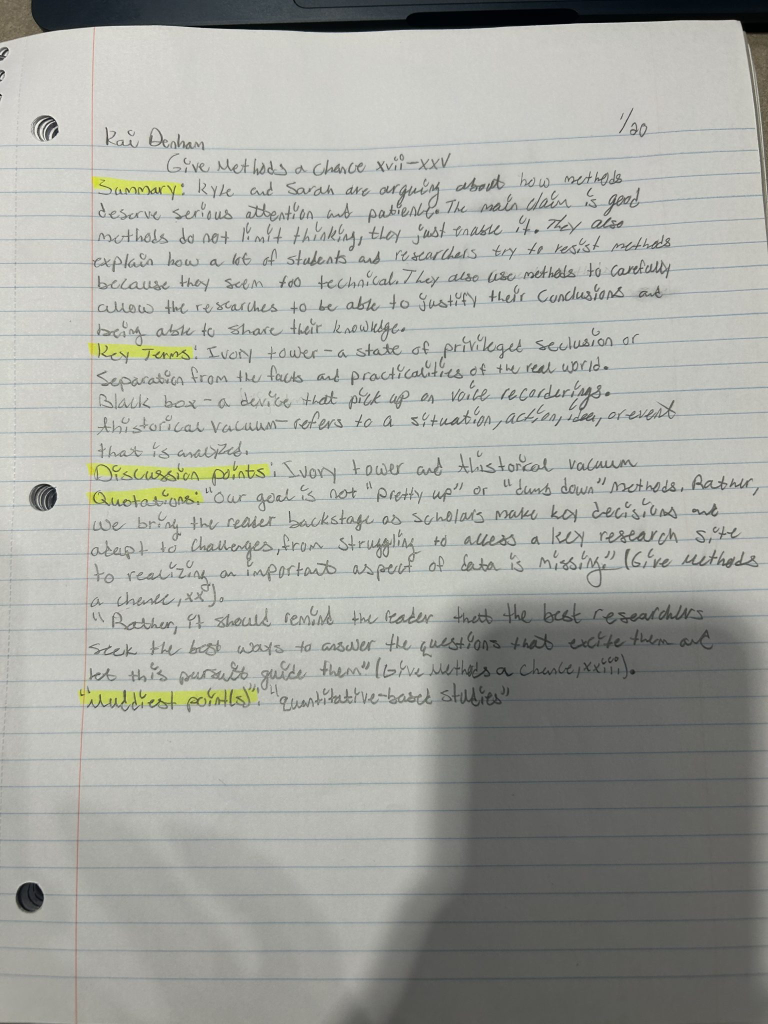 1/20
Kai Denham
Give Methods a Chance xvii-xxv
Summary: Kyle and Sarah are arguing about how methods
deserve serious attention and patience. The main claim is good
methods do not limit thinking, they just enable it. They also
explain how a lot of students and researchers try to resist methods
because they seem too technical. They also use methods to carefully
allow the researches to be able to justify their conclusions and
being able to share their knowledge.
Key Terms: Ivory tower - a state of privileged seclusion or
separation from the facts and practicalities of the real world.
Black box - a device that pick up on voice recorderings.
Ahistorical vacuum - refers to a situation, action, idea, or event
that is analyzed.
Discussion points: Ivory tower and Ahistorical vacuum
Quotations: "Our goal is not "pretty up" or "dumb down" methods. Rather,
we bring the reader backstage as scholars make key decisions and
adapt to challenges, from struggling to access a key research site
to realizing an important aspect of data is missing." (Give Methods
a chance, xx).
"Rather, it should remind the reader that the best researchers
seek the best ways to answer the questions that excite them and
let this pursuit guide them" (Give Methods a chance, xxiii).
"Muddiest point(s)": "quantitative-based studies"